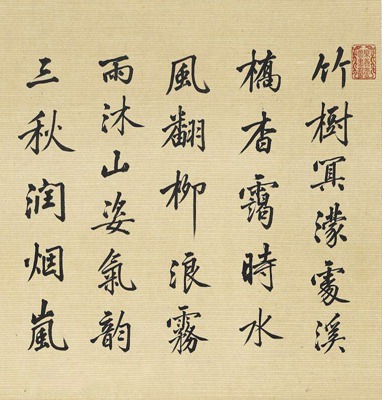 竹樹冥濛處溪
橋杳靄時水
風翻柳浪霧
雨沐山姿氣韵
三秋润烟嵐